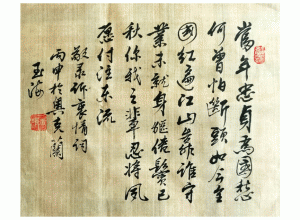 當年忠貞為國愁
何曾怕斷頭如今全
國紅遍江山靠誰守
業未就身軀倦鬢已
秋你我之輩忍將夙
愿付注东流
敬录诉衷情词
丙申於奧克蘭